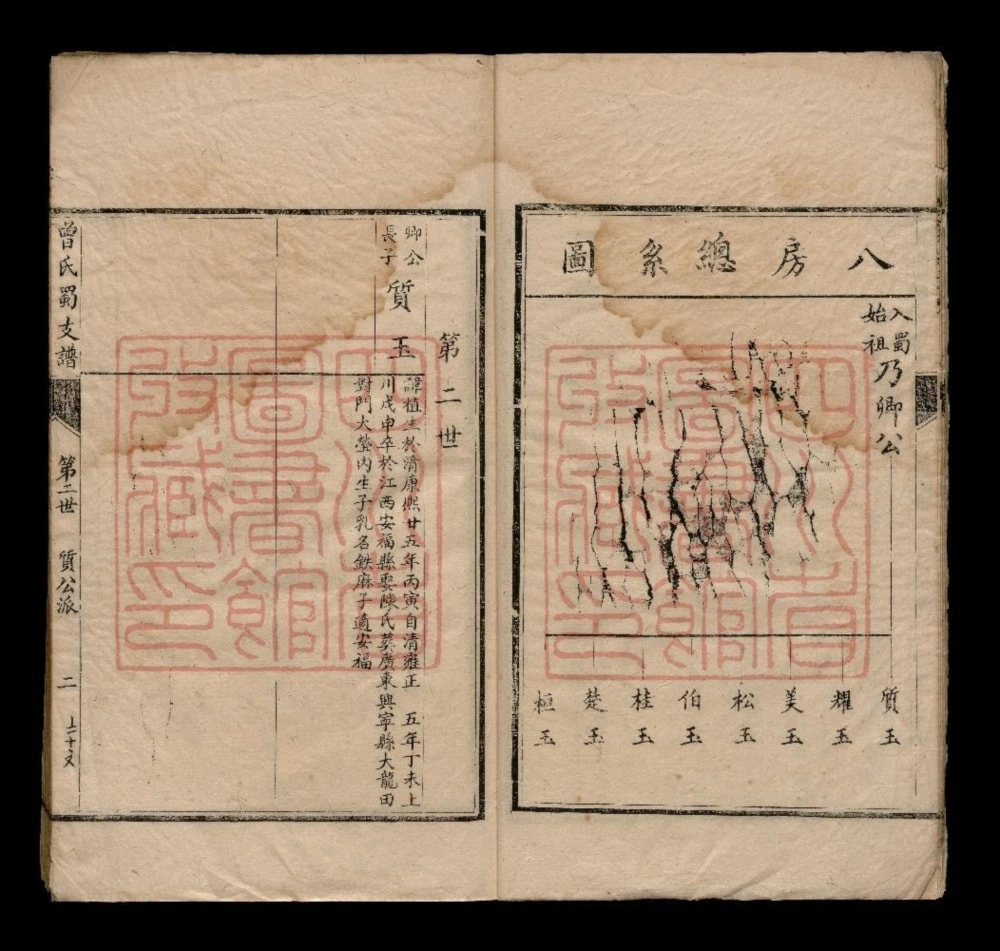 八房總系圖
入蜀
始祖
乃卿公
質玉
耀玉
美玉
松玉
伯玉
桂玉
楚玉
桓玉
第二世
卿公
長子
質玉
諱植生於清康熙廿五年丙寅自清雍正 五年丁未上
川戊申卒於江西安福縣娶陳氏葬廣東興寧縣大龍田
對門大塋內生子乳名鉄麻子適安福
曾氏蜀支譜
第二世 質公派
二
四川省
圖書館
收藏印
四川省
圖書館
收藏印